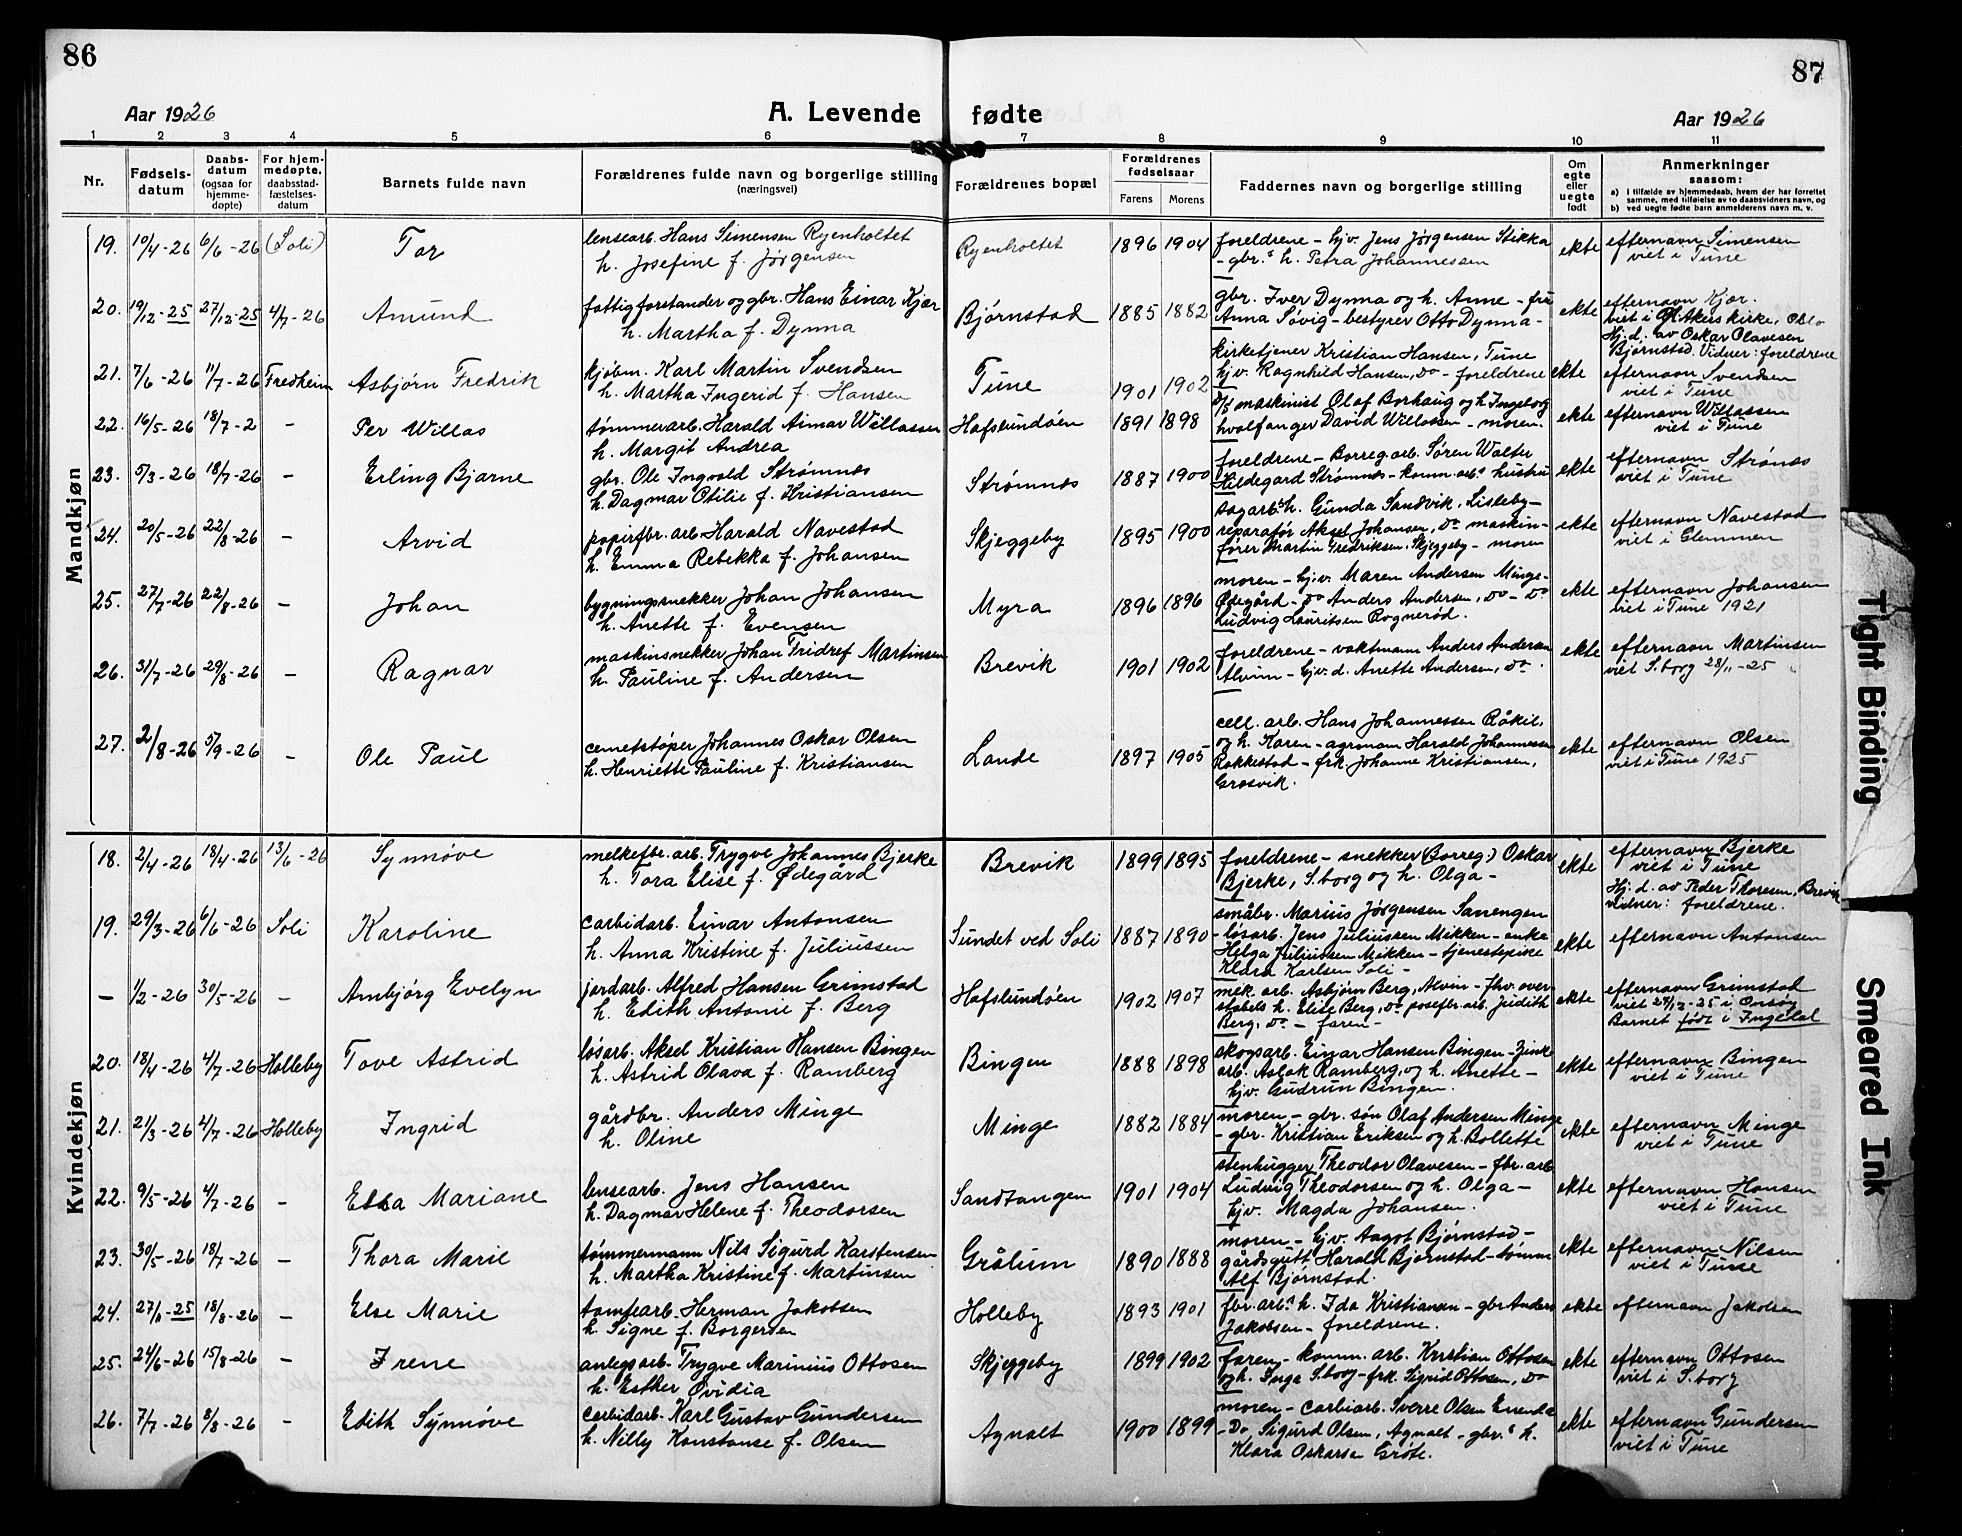 86
87
Aar 1926
A. Levende fødte
Aar 1926
1 2 3 4 5 6 7 8 9 10 11
Nr.
Fødsels-
datum
Daabs-
datum
(ogsaa for
hjemme-
døpte)
For hjem-
medøpte,
daabsstad-
fæstelses-
datum
Barnets fulde navn
Forældrenes fulde navn og borgerlige stilling
(næringsvei)
Forældrenes bopæl
Forældrenes
fødselsaar
Farens Morens
Faddernes navn og borgerlige stilling
Om
egte
eller
uegte
født
Anmerkninger
saasom:
a) i tilfælde av hjemmedaab, hvem der har forrettet
samme, med tilføielse av to daabsvidners navn, og
b) ved uegte fødte barn anmelderens navn m. v.
Mandkjøn
19. 10/4-26 6/6-26 (Soli) Tor
lensearb. Hans Simensen Ryenholtet
h. Josefine f. Jørgensen
Ryenholtet 1896 1904
foreldrene - hjv. Jens Jørgensen Stikka
- gbr.s h. Petra Johannessen
ekte
efternavn Simensen
viet i Tune
20. 19/12-25 27/12-25 4/7-26 Amund
fattigforstander og gbr. Hans Einar Kjær
h. Martha f. Dynna
Bjørnstad 1885 1882
gbr. Iver Dynna og h. Anne - frk
Anna Søvig - bestyrer Otto Dynna -
ekte
efternavn Kjær.
viet i Gl. Akers kirke, Oslo
Hj.d. av Oskar Olavesen
Bjørnstad. Vidner: foreldrene
21. 7/6-26 11/7-26 Fredheim Asbjørn Fredrik
kjøbm. Karl Martin Svendsen
h. Martha Ingerid f. Hansen
Tune 1901 1902
kirketjener Kristian Hansen, Tune
hjv. Ragnhild Hansen, Do - foreldrene
ekte
efternavn Svendsen
viet i Tune
22. 16/5-26 18/7-2 - Per Willas
tømmerarb. Harald Aimar Willassen
h. Margit Andrea
Hafslundøen 1891 1898
maskinist Olaf Borhaug og h. Ingeborg
hvalfanger David Willassen - moren.
ekte
efternavn Willassen
viet i Tune
23. 5/3-26 18/7-26 - Erling Bjarne
gbr. Ole Ingvald Strømnæs
h. Dagmar Otilie f. Kristiansen
Strømnæs 1887 1900
foreldrene - Borreg.arb. Søren Walter
Hildegard Strømnæs - komm. arb.s hustru
ekte
efternavn Strømnæs
viet i Tune
24. 20/5-26 22/8-26 - Arvid
papirfbr. arb. Harald Navestad
h. Emma Rebekka f. Johansen
Skjeggeby 1895 1900
sagarb.s h. Gunda Sandvik, Lisleby -
reparatør Aksel Johansen, Do maskin-
fører Martin Fredriksen, Skjeggeby - moren
ekte
efternavn Navestad
viet i Glemmen
25. 27/7-26 22/8-26 - Johan
bygningsnekker Johan Johansen
h. Anette f. Evensen
Myra 1896 1896
moren - hjv. Maren Andersen Minge-
Ødegård - Do Anders Andersen, Do - Do
Ludvig Lauritsen Rognerød.
ekte
efternavn Johansen
viet i Tune 1921
26. 31/7-26 29/8-26 - Ragnar
maskinsnekker Johan Fridref Martinsen
h. Pauline f. Andersen
Brevik 1901 1902
foreldrene - vaktmann Anders Andersen
Alvim - hjv. d. Anette Andersen, Do.
ekte
efternavn Martinsen
viet S.borg 28/11-25
27. 2/8-26 5/9-26 - Ole Paul
cemetstøper Johannes Oskar Olsen
h. Henriette Pauline f. Kristiansen
Lande 1897 1905
cell. arb. Hans Johannessen Råkil,
og h. Karen - agronom Harald Johannessen
Rakkestad - frk. Johanne Kristiansen,
Gresvik.
ekte
efternavn Olsen
viet i Tune 1925
Kvindekjøn
18. 2/4-26 18/4-26 13/6-26 Synnøve
melkefbr. arb. Trygve Johannes Bjerke
h. Tora Elise f. Ødegård
Brevik 1899 1895
foreldrene - snekker (Borreg.) Oskar
Bjerke, S.borg og h. Olga -
ekte
efternavn Bjerke
viet i Tune
Hj. d. av Peder Thoresen, Brevik
vidner: foreldrene.
19. 29/3-26 6/6-26 Soli Karoline
carbidarb. Einar Antonsen
h. Anna Kristine f. Juliussen
Sundet ved Soli 1887 1890
småbr. Marius Jørgensen Sanengen
- løsarb. Jens Juliussen Mikken - enke
Helga Juliussen Mikken - tjenestepike
Klara Karlsen Soli -
ekte
efternavn Antonsen
- 1/2-26 30/5-26 - Ambjørg Evelyn
jordarb. Alfred Hansen Grimstad
h. Edith Antonie f. Berg
Hafslundøen 1902 1907
mek. arb. Asbjørn Berg, Alvim - fhv. over-
stabels h. Elise Berg, Do. posefbr. arb. Judith
Berg, Do - faren -
ekte
efternavn Grimstad
viet 24/12-25 i Onsøy
Barnet født i Ingedal
20. 18/4-26 4/7-26 Holleby Tove Astrid
løsarb. Aksel Kristian Hansen Bingen
h. Astrid Olava f. Ramberg
Bingen 1888 1898
skogsarb. Einar Hansen Bingen - Zink-
arb. Aslak Ramberg, og h. Anette -
hjv. Gudrun Bingen.
ekte
efternavn Bingen
viet i Tune
21. 21/3-26 4/7-26 Holleby Ingrid
gårdbr. Anders Minge
h. Oline
Minge 1882 1884
moren - gbr. søn Olaf Andersen Minge
- gbr. Kristian Eriksen og h. Bollette
ekte
efternavn Minge
viet i Tune
22. 9/5-26 4/7-26 - Ebba Mariane
lensearb. Jens Hansen
h. Dagmar Helene f. Theodorsen
Sandtangen 1901 1904
stenhugger Theodor Olavesen - fbr. arb
Ludvig Theodorsen og h. Olga -
hjv. Magda Johansen.
ekte
efternavn Hansen
viet i Tune
23. 30/5-26 18/7-26 - Thora Marie
tømmermann Nils Sigurd Karstensen
h. Martha Kristine f. Martinsen
Grålum 1890 1888
moren - hjv. Aagot Bjørnstad -
gårdsgutt Harald Bjørnstad - tømm
Alf Bjørnstad.
ekte
efternavn Nilsen
viet i Tune
24. 27/11-25 18/8-26 - Else Marie
tomtearb. Herman Jakobsen
h. Signe f. Borgersen
Holleby 1893 1901
fbr. arb.s h. Ida Kristiansen - gbr Anders
Jakobsen - foreldrene.
ekte
efternavn Jakobsen
25. 24/6-26 15/8-26 - Irene
anlegsarb. Trygve Marinius Ottosen
h. Esther Ovidia
Skjeggeby 1899 1902
faren - komm. arb. Kristian Ottosen
og h. Inga S.borg - frk. Sigrid Ottosen, Do
ekte
efternavn Ottosen
viet i S.borg
26. 7/7-26 8/8-26 - Edith Synnøve
carbidarb. Karl Gustav Gundersen
h. Nilly Konstanse f. Olsen
Agnalt 1900 1899
moren - carbiarb. Sverre Olsen Enenda
- Do. Sigurd Olsen, Agnalt - gbr.s h.
Klara Oskarsa Grøte.
ekte
efternavn Gundersen
viet i Tune
Tight Binding
Smeared Ink